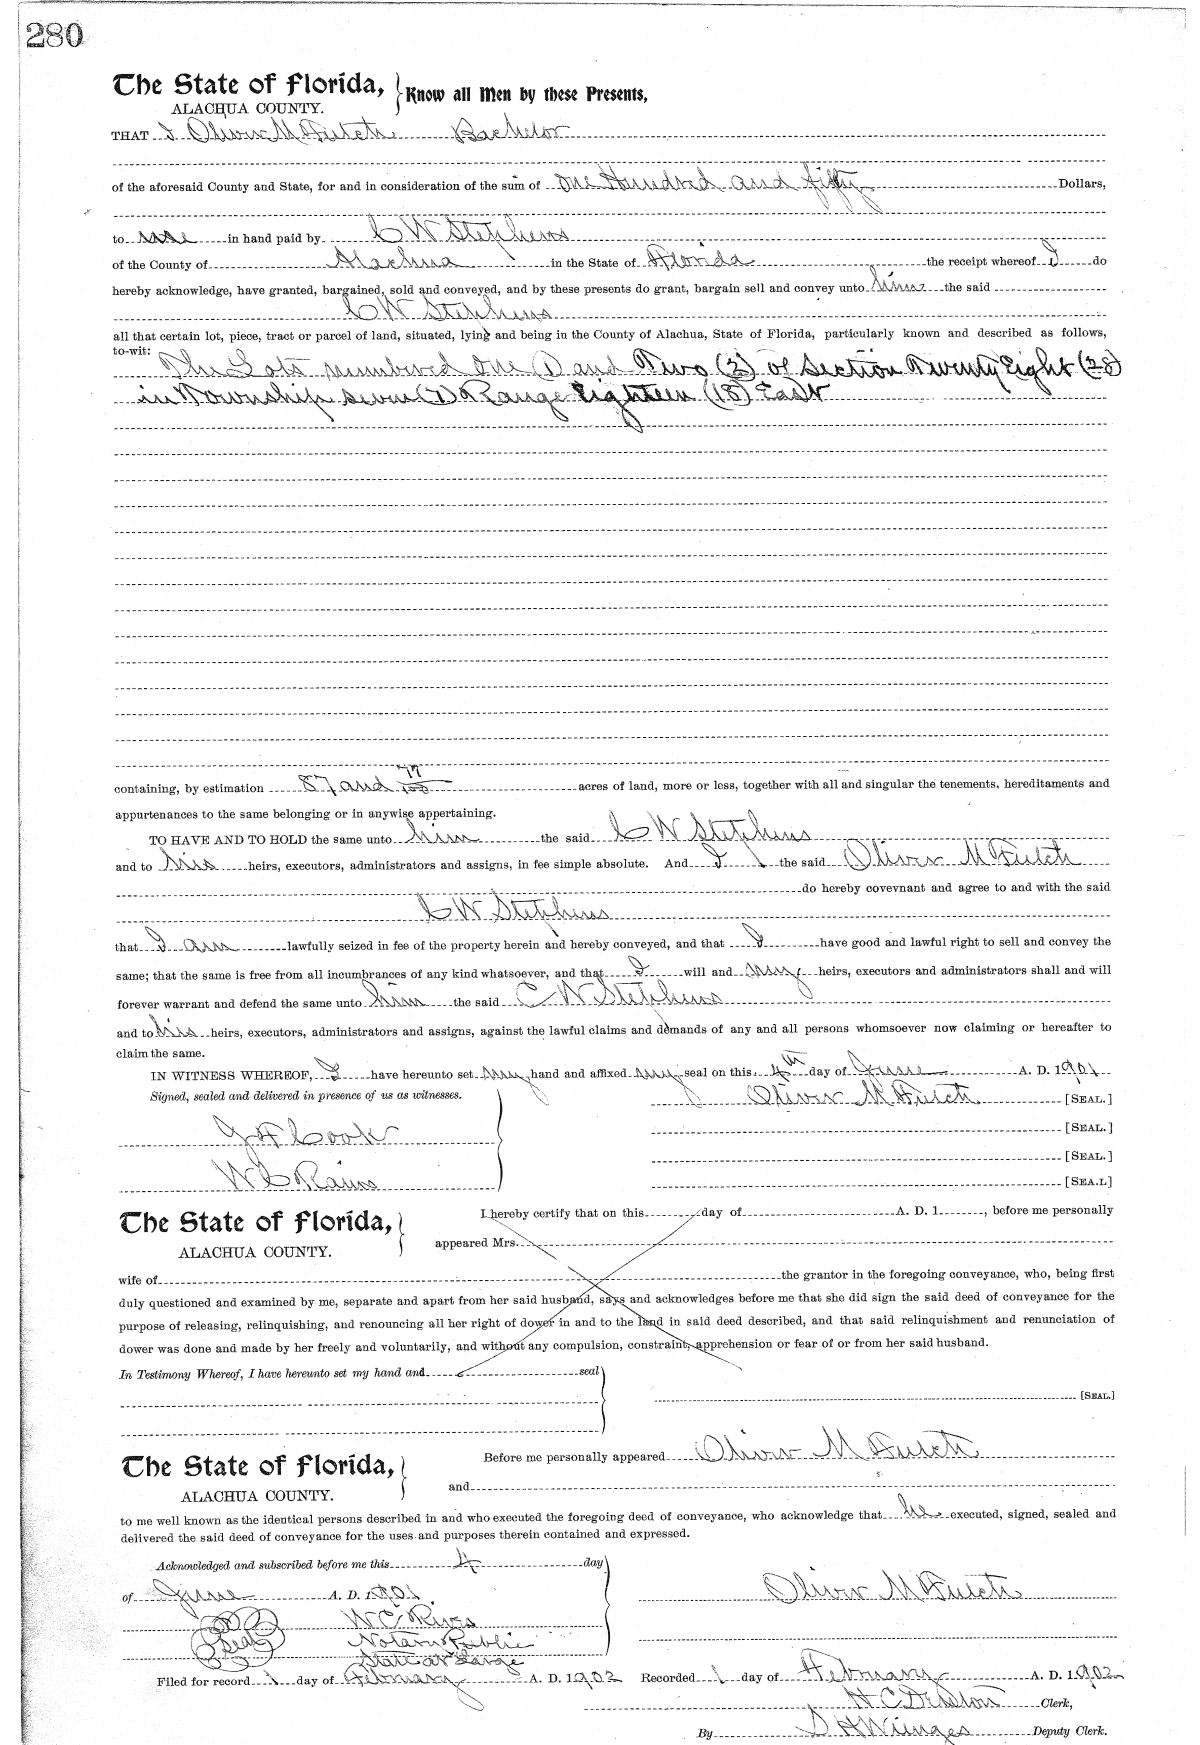 280
The State of Florida, Know all Men by these Presents,
ALACHUA COUNTY.
THAT I Oliver M Futch Bachelor
of the aforesaid County and State, for and in consideration of the sum of One Hundred and fifty Dollars,
to me in hand paid by C W Stephens
of the County of Alachua in the State of Florida the receipt whereof I do
hereby acknowledge, have granted, bargained, sold and conveyed, and by these presents do grant, bargain sell and convey unto him the said
C W Stephens
all that certain lot, piece, tract or parcel of land, situated, lying and being in the County of Alachua, State of Florida, particularly known and described as follows,
to-wit: The Lots numbered One (1) and Two (2) of Section Twenty Eight (28)
in Township seven (7) Range Eighteen (18) East
containing, by estimation 87 and 77/100 acres of land, more or less, together with all and singular the tenements, hereditaments and
appurtenances to the same belonging or in anywise appertaining.
TO HAVE AND TO HOLD the same unto him the said C W Stephens
and to his heirs, executors, administrators and assigns, in fee simple absolute. And I the said Oliver M Futch
do hereby covevnant and agree to and with the said
C W Stephens
that I am lawfully seized in fee of the property herein and hereby conveyed, and that I have good and lawful right to sell and convey the
same; that the same is free from all incumbrances of any kind whatsoever, and that I will and my heirs, executors and administrators shall and will
forever warrant and defend the same unto him the said C W Stephens
and to his heirs, executors, administrators and assigns, against the lawful claims and demands of any and all persons whomsoever now claiming or hereafter to
claim the same.
IN WITNESS WHEREOF, I have hereunto set my hand and affixed my seal on this 4th day of June A. D. 1901
Signed, sealed and delivered in presence of us as witnesses. Oliver M Futch [SEAL.]
[SEAL.]
J F Cook
[SEAL.]
W C Rains [SEA.L]
The State of Florida, I hereby certify that on this day of A. D. 1 , before me personally
ALACHUA COUNTY. appeared Mrs.
wife of the grantor in the foregoing conveyance, who, being first
duly questioned and examined by me, separate and apart from her said husband, says and acknowledges before me that she did sign the said deed of conveyance for the
purpose of releasing, relinquishing, and renouncing all her right of dower in and to the land in said deed described, and that said relinquishment and renunciation of
dower was done and made by her freely and voluntarily, and without any compulsion, constraint, apprehension or fear of or from her said husband.
In Testimony Whereof, I have hereunto set my hand and seal
[SEAL.]
The State of Florida, Before me personally appeared Oliver M Futch
ALACHUA COUNTY. and
to me well known as the identical persons described in and who executed the foregoing deed of conveyance, who acknowledge that he executed, signed, sealed and
delivered the said deed of conveyance for the uses and purposes therein contained and expressed.
Acknowledged and subscribed before me this 4 day
of June A. D. 1901. Oliver M Futch
W C Rives
Seal Notary Public
State at Large
Filed for record 1 day of February A. D. 1902 Recorded 1 day of February A. D. 1902
H C Denton Clerk,
By S H Wienges Deputy Clerk.